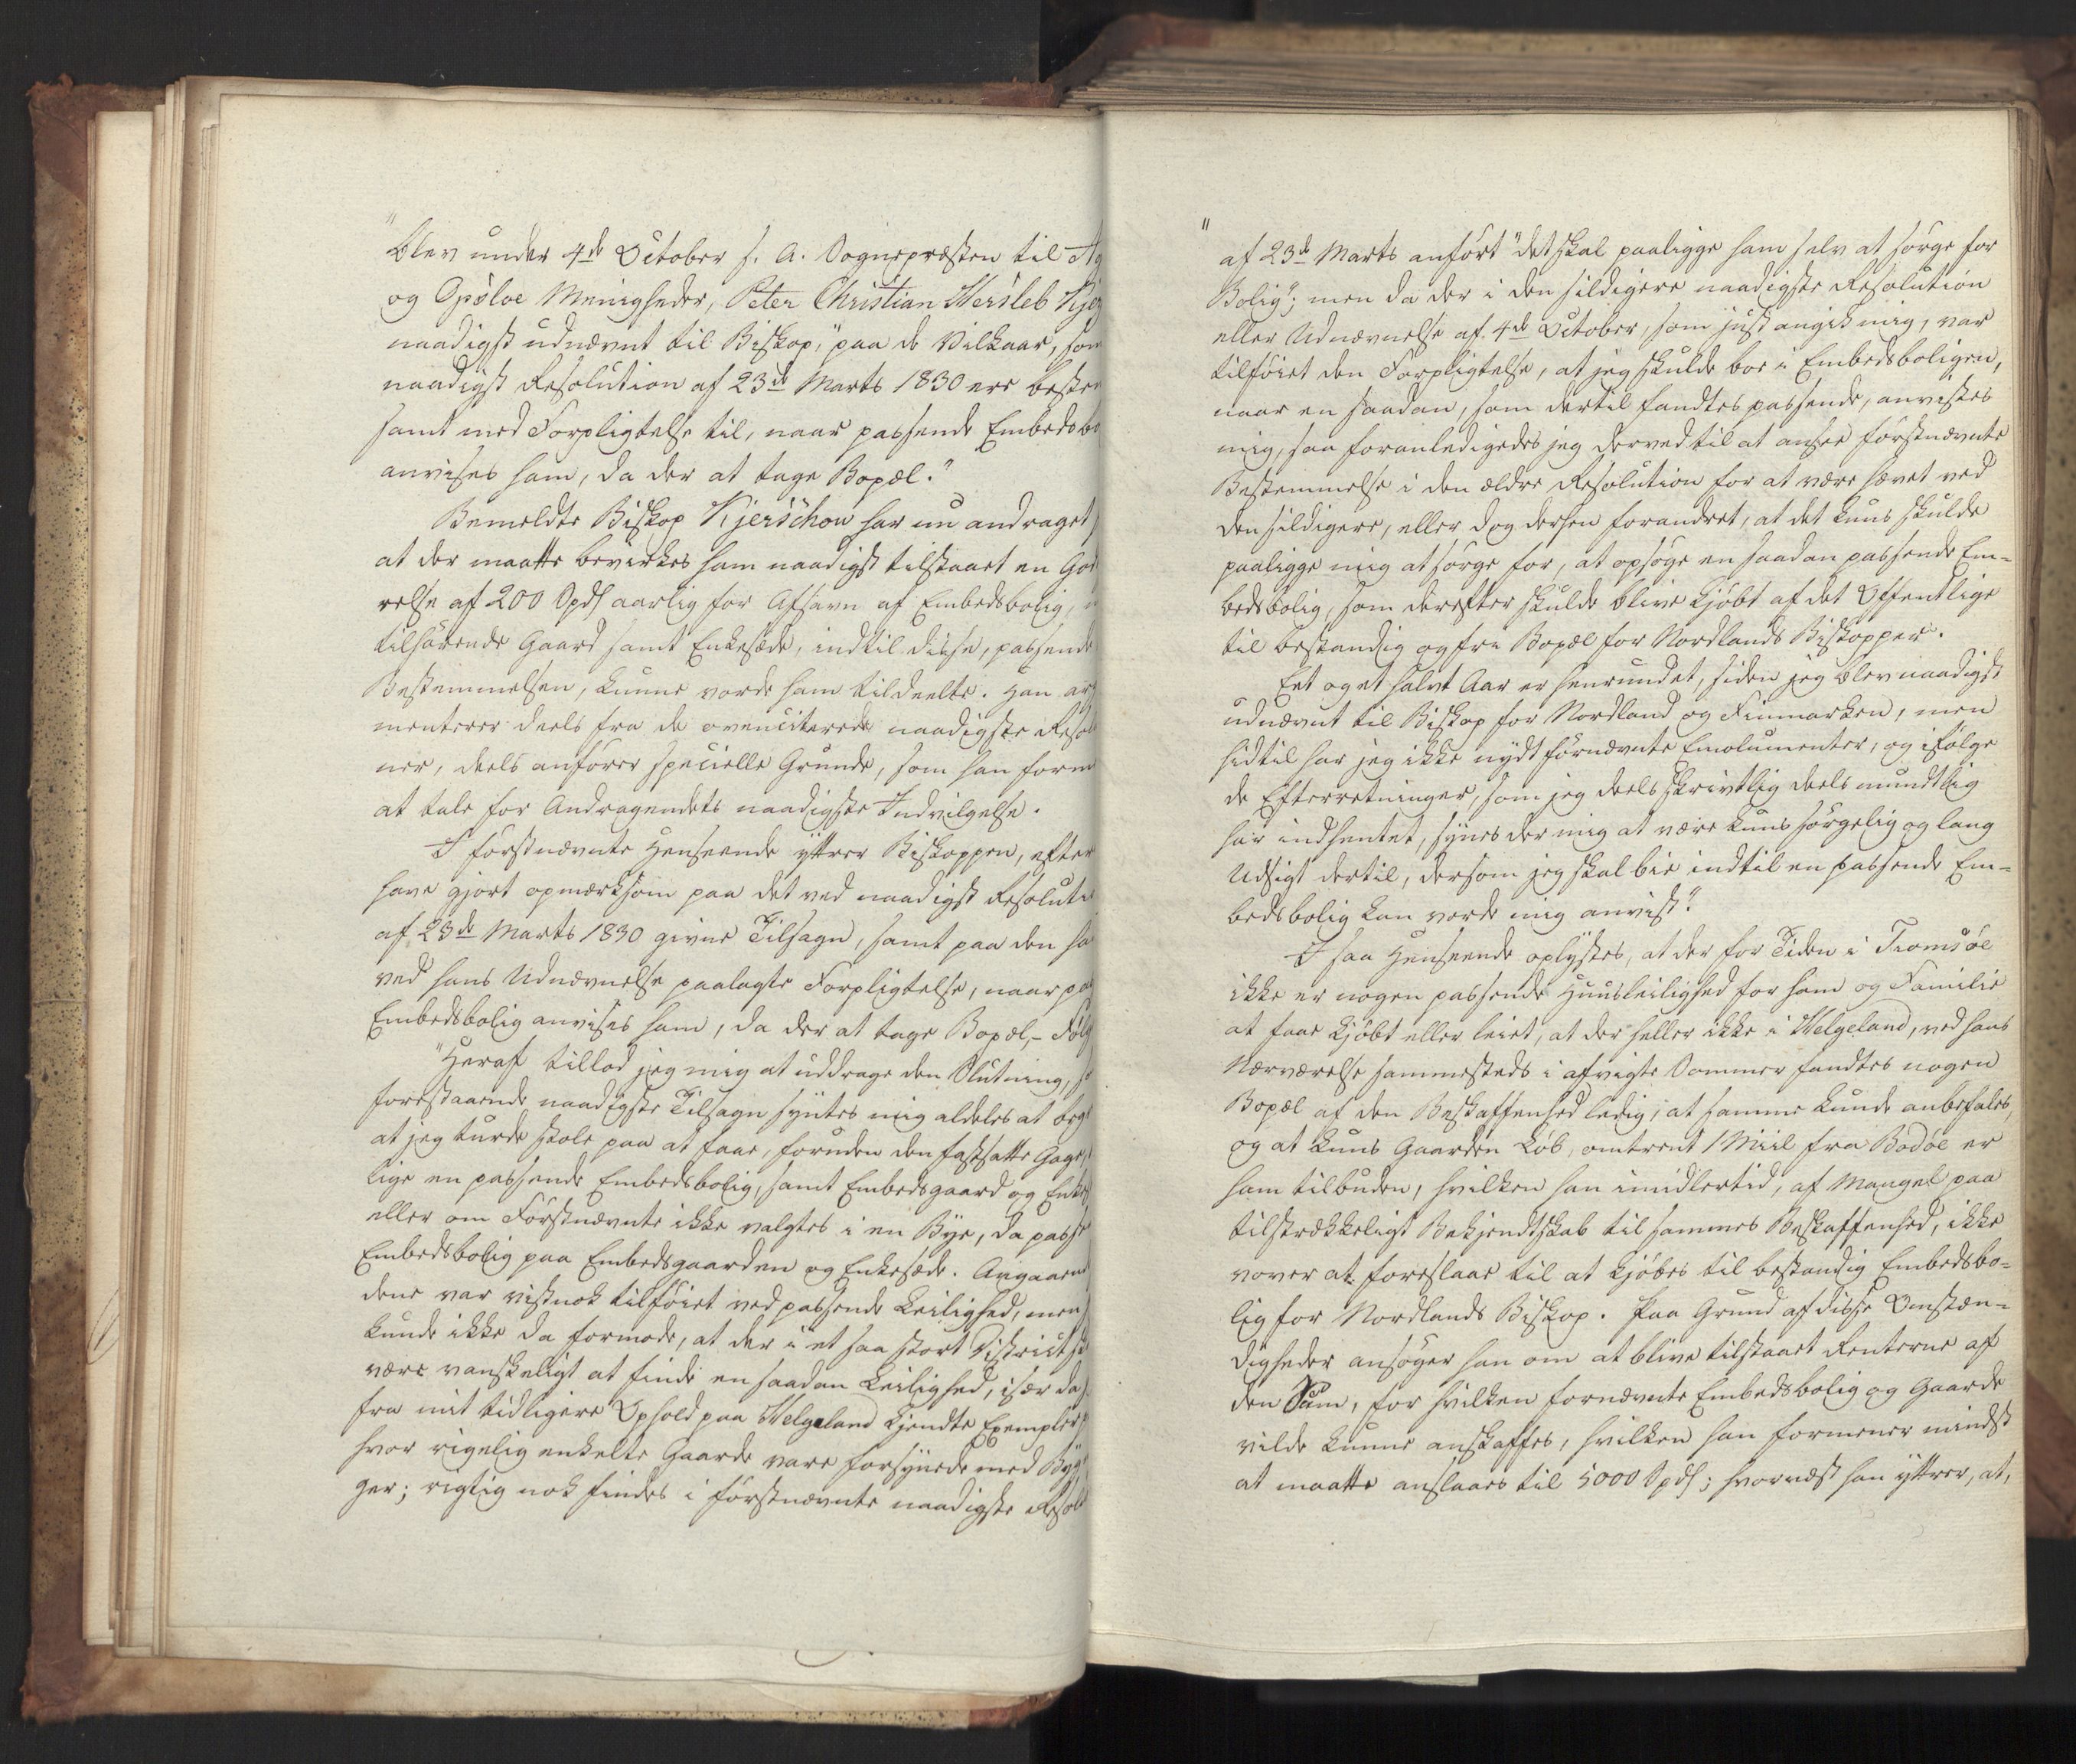 "blev under 4de October s. A. Sognepræsten til Ag
og Opsloe Menigheder, Peter Christian Hersleb Kjer
naadigst udnævnt til Biskop," paa de Vilkaar, som
naadigst Resolution af 23de Marts 1830 ere bestem
samt med Forpligtelse til, naar passende Embedsbo
anvises ham, da der at tage Bopæl."
Bemeldte Biskop Kjerschow har nu andraget
at der maatte bevirkes ham naadigst tilstaaet en God
relse af 200 Spd aarlig for Afsavn af Embedsbolig,
tilhørende Gaard samt Enkesæde, indtil disse, passende
Bestemmelsen, kunne vorde ham tildeelte. Han ar
menterer deels fra de ovenciterede naadigste Resol
ner, deels anfører specielle Grunde, som han form
at tale for Andragendets naadigste Indvilgelse.
I førstnævnte Henseende yttrer Biskoppen, efter
have gjort opmærksom paa det ved naadigst Resoluti
af 23de Marts 1830 givne Tilsagn, samt paa den ha
ved hans Udnævnelse paalagte Forpligtelse, naar pas
Embedsbolig anvises ham, da der at tage Bopæl, – Følg
"Heraf tillod jeg mig at uddrage den Slutning,
forestaaende naadigste Tilsagn syntes mig aldeles at beg
at jeg turde stole paa at faae, foruden den fastsatte Gage,
lige en passende Embedsbolig, samt Embedsgaard og Enkes
eller om Førstnævnte ikke valgtes i en Bye, da passe
Embedsbolig paa Embedsgaarden og Enkesæde. Angaaend
dene var vistnok tilføiet ved passende Leilighed, men
kunde ikke da formode, at der i et saa stort District sk
være vanskeligt at finde en saadan Leilighed, især da
fra mit tidligere Ophold paa Helgeland kjendte Exempler p
hvor rigelig enkelte Gaarde vare forsynede med Byg
ger; rigtig nok findes i førstnævnte naadigste Resol
"af 23de Marts anført "det skal paaligge ham selv at sørge for
Bolig"; men da der i den sildigere naadigste Resolution
eller Udnævnelse af 4de October, som just angik mig, var
tilføiet den Forpligtelse, at jeg skulde boe i Embedsboligen,
naar en saadan, som dertil fandtes passende, anvistes
mig, saa foranledigedes jeg derved til at ansee førstnævnte
Bestemmelse i den ældre Resolution for at være hævet ved
den sildigere, eller dog derhen forandret, at det kuns skulde
paaligge mig at sørge for, at opsøge en saadan passende Em-
bedsbolig, som derefter skulde blive kjøbt af det Offentlige
til bestandig og fri Bopæl for Nordlands Biskopper.
Eet og et halvt Aar er henrundet, siden jeg blev naadigst
udnævnt til Biskop for Nordland og Finmarken, men
hidtil har jeg ikke nydt førnævnte Emolumenter, og ifølge
de Efterretninger, som jeg deels skrivtlig deels mundtlig
har indhentet, synes der mig at være kuns sørgelig og lang
Udsigt dertil, dersom jeg skal bie indtil en passende Em-
bedsbolig kan vorde mig anvist."
I saa Henseende oplystes, at der for Tiden i Tromsøe
ikke er nogen passende Huusleilighed for ham og Familie
at faae kjøbt eller leiet, at der heller ikke i Helgeland, ved hans
Nærværelse sammesteds i afvigte Sommer fandtes nogen
Bopæl af den Beskaffenhed ledig, at samme kunde anbefales,
og at kuns Gaarden Løb, omtrent 1 Miil fra Bodøe er
ham tilbuden, hvilken han imidlertid, af Mangel paa
tilstrækkeligt Bekjendtskab til sammes Beskaffenhed, ikke
vover at foreslaae til at kjøbes til bestandig Embedsbo-
lig for Nordlands Biskop. Paa Grund af disse Omstæn-
digheder ansøger han om at blive tilstaaet Renterne af
den Sum, for hvilken fornævnte Embedsbolig og Gaarde
vilde kunne anskaffes, hvilken han formener mindst
at maatte anslaaes til 5000 Spd; hvornæst han yttrer, at,